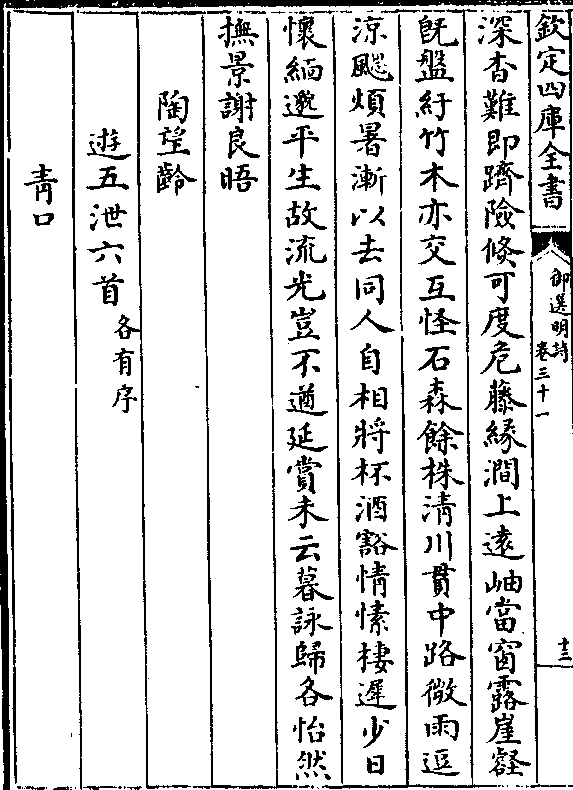 欽定四庫全書
御選明詩
卷三十一
十三
深杳難即躋險倏可度危藤緣澗上遠岫當窗露崖壑
旣盤紆竹木亦交互怪石森餘株淸川貫中路微雨逗
涼颸煩暑漸以去同人自相將杯酒豁情愫棲遲少日
懷緬邈平生故流光豈不遒延賞未云暮詠歸各怡然
撫景謝良晤
陶望齡
遊五泄六首
各有序
靑口